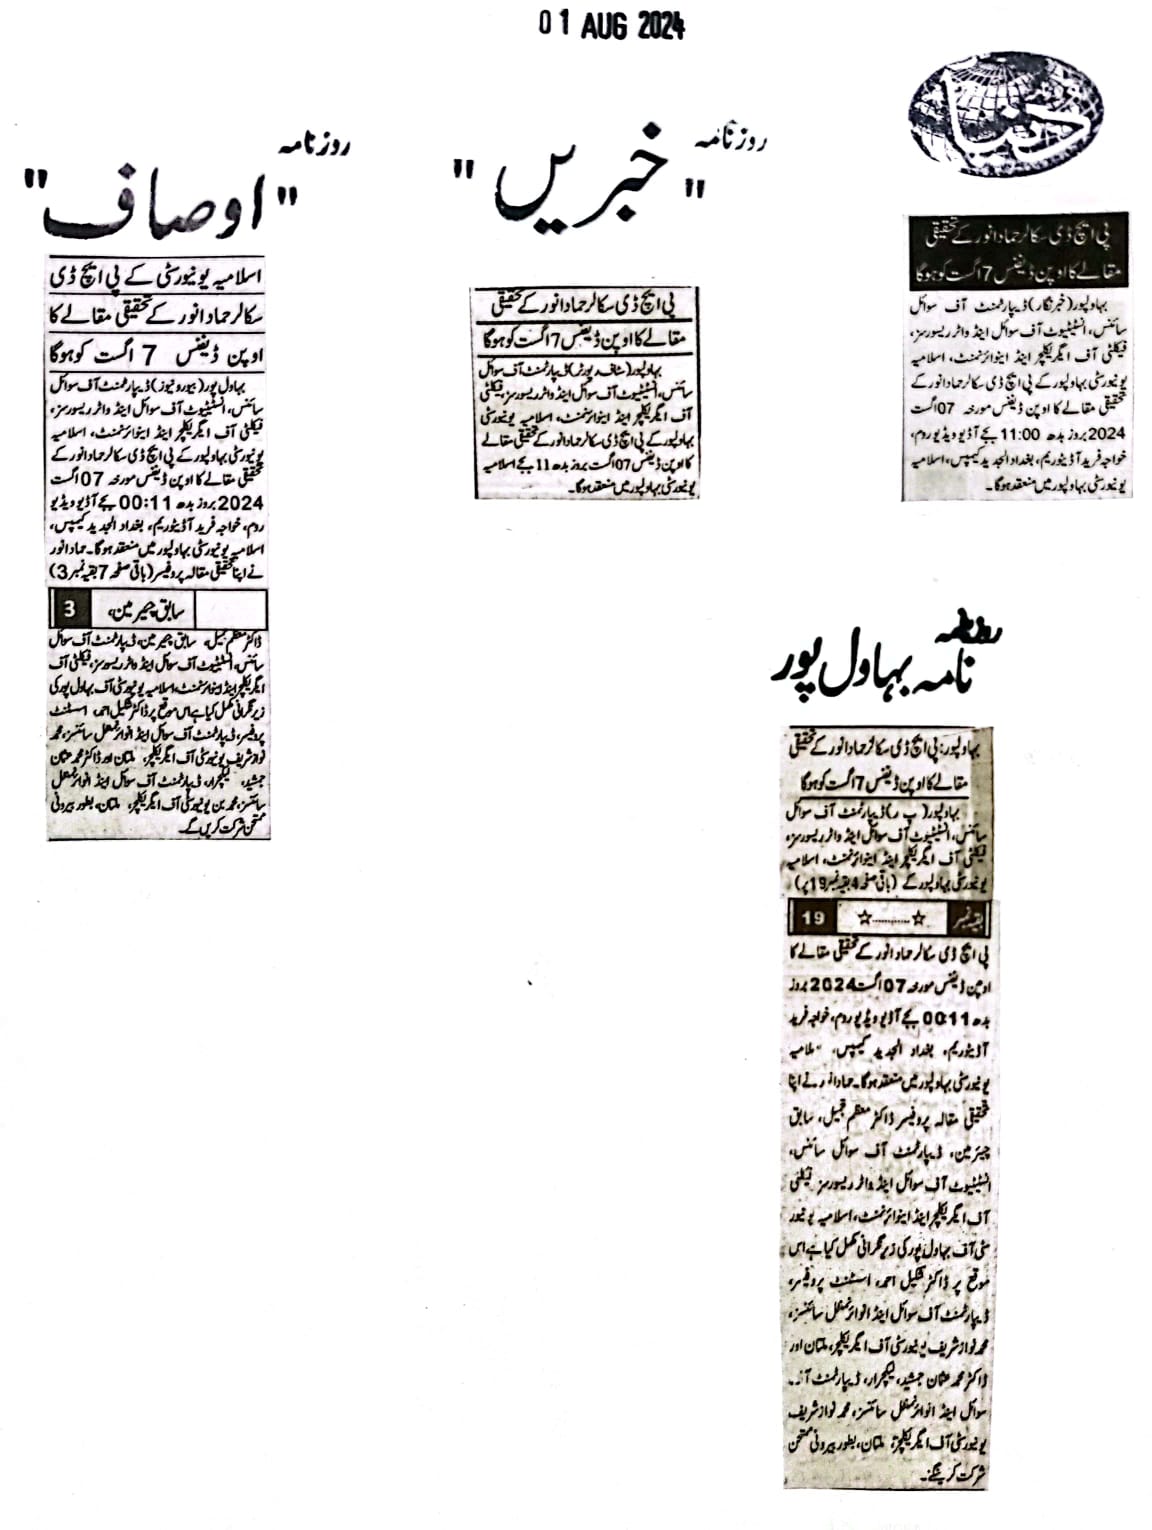 01 AUG 2024
روزنامہ
"اوصاف"
اسلامیہ یونیورسٹی کے پی ایچ ڈی
سکالر حماد انور کے تحقیقی مقالے کا
اوپن ڈیفنس 7 اگست کو ہوگا
بہاول پور (بیورو نیوز) ڈیپارٹمنٹ آف سوائل
سائنس، انسٹیٹیوٹ آف سوائل اینڈ واٹر ریسورسز،
فیکلٹی آف ایگریکلچر اینڈ اینوائرنمنٹ، اسلامیہ
یونیورسٹی بہاولپور کے پی ایچ ڈی سکالر حماد انور کے
تحقیقی مقالے کا اوپن ڈیفنس مورخہ 07 اگست
2024 بروز بدھ 00:11 بجے آڈیو ویڈیو
روم، خواجہ فرید آڈیٹوریم، بغداد الجدید کیمپس،
اسلامیہ یونیورسٹی بہاولپور میں منعقد ہوگا۔ حماد انور
نے اپنا تحقیقی مقالہ پروفیسر (باقی صفحہ 7 بقیہ نمبر 3)
3 سابق چیئرمین،
ڈاکٹر معظم جمیل، سابق چیئرمین، ڈیپارٹمنٹ آف سوائل
سائنس، انسٹیٹیوٹ آف سوائل اینڈ واٹر ریسورسز، فیکلٹی آف
ایگریکلچر اینڈ اینوائرنمنٹ، اسلامیہ یونیورسٹی آف بہاول پور کی
زیر نگرانی مکمل کیا ہے اس موقع پر ڈاکٹر شکیل احمد، اسسٹنٹ
پروفیسر، ڈیپارٹمنٹ آف سوائل اینڈ انوائرنمنٹل سائنسز، محمد
نواز شریف یونیورسٹی آف ایگریکلچر، ملتان اور ڈاکٹر محمد عثمان
جمشید، لیکچرار، ڈیپارٹمنٹ آف سوائل اینڈ انوائرنمنٹل
سائنسز، محمد بن یونیورسٹی آف ایگریکلچر، ملتان، بطور بیرونی
ممتحن شرکت کریں گے۔
روزنامہ
"خبریں"
پی ایچ ڈی سکالر حماد انور کے تحقیقی
مقالے کا اوپن ڈیفنس 7 اگست کو ہوگا
بہاولپور (سٹاف رپورٹر) ڈیپارٹمنٹ آف سوائل
سائنس، انسٹیٹیوٹ آف سوائل اینڈ واٹر ریسورسز، فیکلٹی
آف ایگریکلچر اینڈ اینوائرنمنٹ، اسلامیہ یونیورسٹی
بہاولپور کے پی ایچ ڈی سکالر حماد انور کے تحقیقی مقالے
کا اوپن ڈیفنس 07 اگست بروز بدھ 11 بجے اسلامیہ
یونیورسٹی بہاولپور میں منعقد ہوگا۔
دنیا
پی ایچ ڈی سکالر حماد انور کے تحقیقی
مقالے کا اوپن ڈیفنس 7 اگست کو ہوگا
بہاولپور (خبر نگار) ڈیپارٹمنٹ آف سوائل
سائنس، انسٹیٹیوٹ آف سوائل اینڈ واٹر ریسورسز،
فیکلٹی آف ایگریکلچر اینڈ اینوائرنمنٹ، اسلامیہ
یونیورسٹی بہاولپور کے پی ایچ ڈی سکالر حماد انور کے
تحقیقی مقالے کا اوپن ڈیفنس مورخہ 07 اگست
2024 بروز بدھ 11:00 بجے آڈیو ویڈیو روم،
خواجہ فرید آڈیٹوریم، بغداد الجدید کیمپس، اسلامیہ
یونیورسٹی بہاولپور میں منعقد ہوگا۔
روزنامہ
نامہ بہاول پور
بہاولپور: پی ایچ ڈی سکالر حماد انور کے تحقیقی
مقالے کا اوپن ڈیفنس 7 اگست کو ہوگا
بہاولپور (پ ر) ڈیپارٹمنٹ آف سوائل
سائنس، انسٹیٹیوٹ آف سوائل اینڈ واٹر ریسورسز،
فیکلٹی آف ایگریکلچر اینڈ اینوائرنمنٹ، اسلامیہ
یونیورسٹی بہاولپور کے (باقی صفحہ 4 بقیہ نمبر 19 پر)
بقیہ نمبر ☆..........☆ 19
پی ایچ ڈی سکالر حماد انور کے تحقیقی مقالے کا
اوپن ڈیفنس مورخہ 07 اگست 2024 بروز
بدھ 00:11 بجے آڈیو ویڈیو روم، خواجہ فرید
آڈیٹوریم، بغداد الجدید کیمپس،
یونیورسٹی بہاولپور میں منعقد ہوگا۔ نے اپنا
تحقیقی مقالہ پروفیسر ڈاکٹر معظم جمیل، سابق
چیئرمین، ڈیپارٹمنٹ آف سوائل سائنس،
انسٹیٹیوٹ آف سوائل اینڈ واٹر ریسورسز فیکلٹی
آف ایگریکلچر اینڈ اینوائرنمنٹ، اسلامیہ یونیور
سٹی آف بہاول پور کی زیر نگرانی مکمل کیا ہے اس
موقع پر ڈاکٹر شکیل احمد، اسسٹنٹ پروفیسر،
ڈیپارٹمنٹ آف سوائل اینڈ انوائرنمنٹل سائنسز،
محمد نواز شریف یونیورسٹی آف ایگریکلچر، ملتان اور
ڈاکٹر محمد عثمان جمشید، لیکچرار، ڈیپارٹمنٹ
سوائل اینڈ انوائرنمنٹل سائنسز، محمد نواز شریف
یونیورسٹی آف ایگریکلچر، ملتان، بطور بیرونی ممتحن
شرکت کرینگے۔